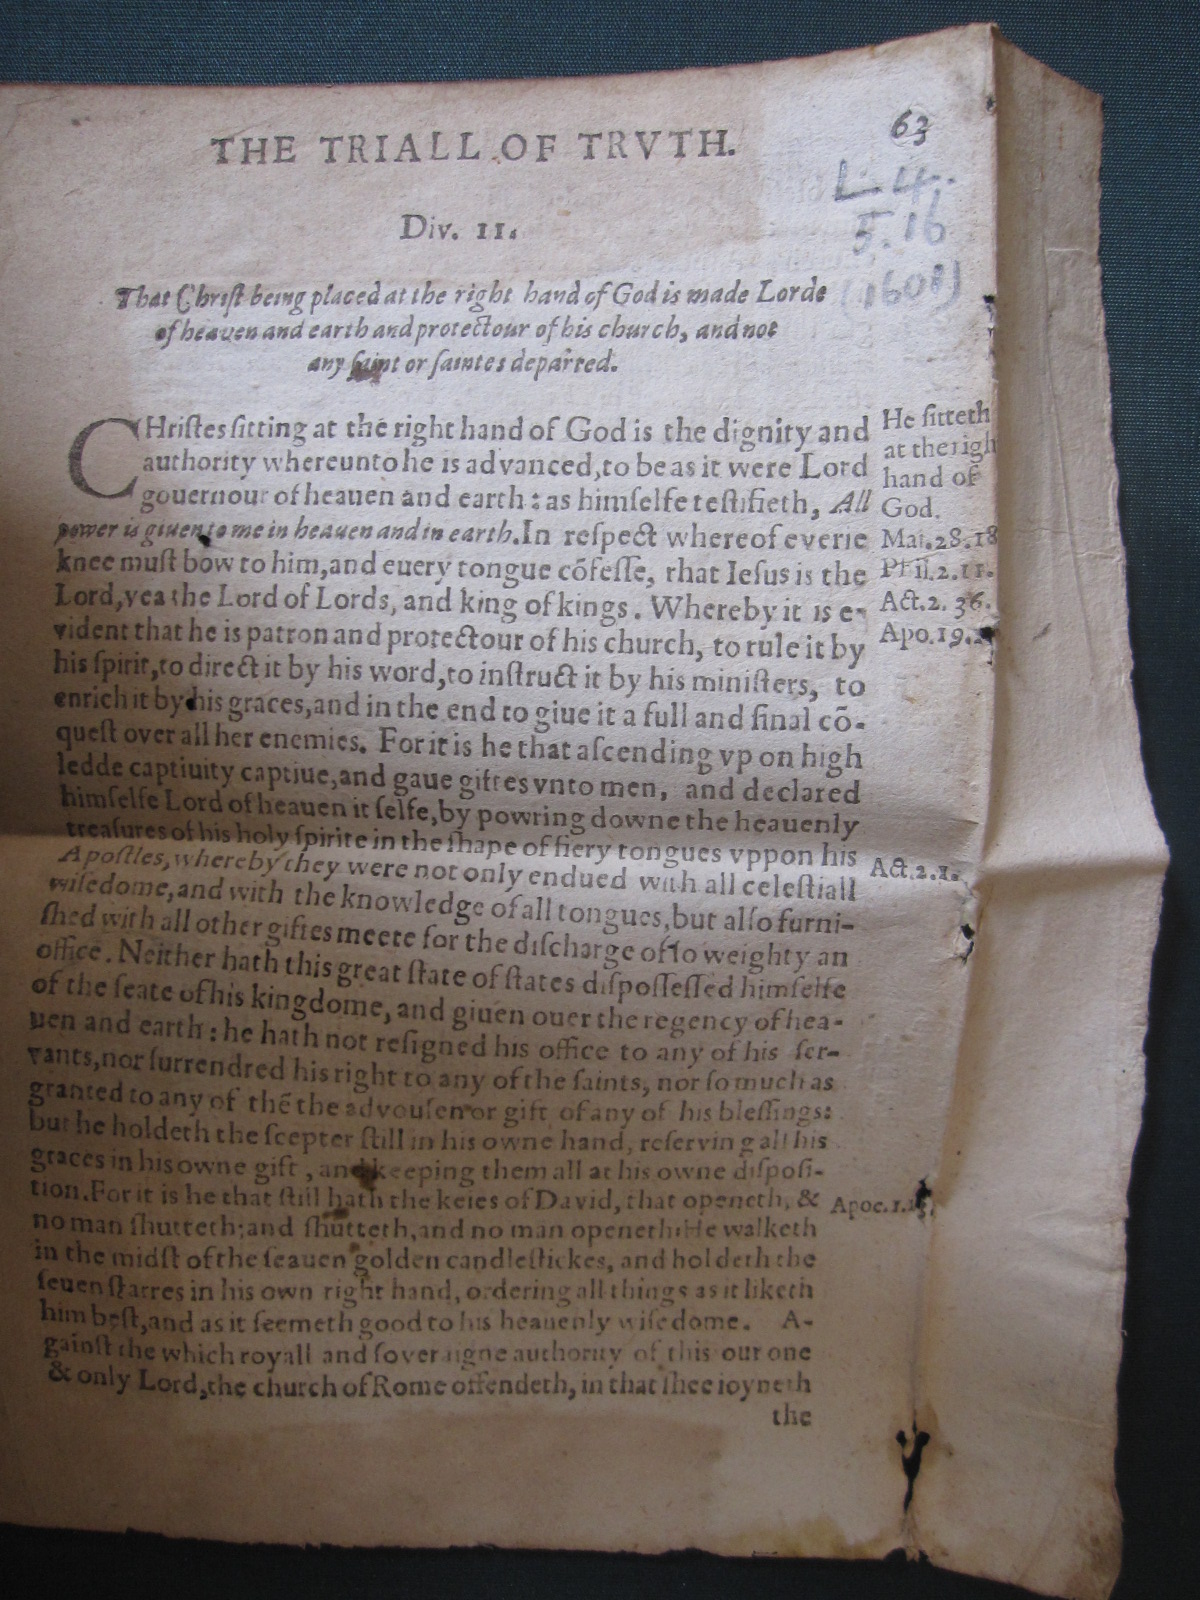 63
THE TRIALL OF TRVTH.
L. 4.
5. 16
(1601)
Div. 11.
That Christ being placed at the right hand of God is made Lorde
of heaven and earth and protectour of his church, and not
any saint or saintes departed.
CHristes sitting at the right hand of God is the dignity and
authority whereunto he is advanced, to be as it were Lord
gouernour of heauen and earth: as himselfe testifieth, All
power is giuen to me in heauen and in earth. In respect whereof everie
knee must bow to him, and euery tongue cõfesse, rhat Iesus is the
Lord, yea the Lord of Lords, and king of kings. Whereby it is e-
vident that he is patron and protectour of his church, to rule it by
his spirit, to direct it by his word, to instruct it by his ministers, to
enrich it by his graces, and in the end to giue it a full and final cõ-
quest over all her enemies. For it is he that ascending vp on high
ledde captiuity captiue, and gaue giftes vnto men, and declared
himselfe Lord of heauen it selfe, by powring downe the heauenly
treasures of his holy spirite in the shape of fiery tongues vppon his
Apostles, whereby they were not only endued with all celestiall
wisedome, and with the knowledge of all tongues, but also furni-
shed with all other giftes meete for the discharge of so weighty an
office. Neither hath this great state of states dispossessed himselfe
of the seate of his kingdome, and giuen ouer the regency of hea-
uen and earth: he hath not resigned his office to any of his ser-
vants, nor surrendred his right to any of the saints, nor so much as
granted to any of thẽ the advousen or gift of any of his blessings:
but he holdeth the scepter still in his owne hand, reserving all his
graces in his owne gift, and keeping them all at his owne disposi-
tion. For it is he that still hath the keies of David, that openeth, &
no man shutteth; and shutteth, and no man openeth: He walketh
in the midst of the seauen golden candlestickes, and holdeth the
seuen starres in his own right hand, ordering all things as it liketh
him best, and as it seemeth good to his heauenly wisedome. A-
gainst the which royall and soveraigne authority of this our one
& only Lord, the church of Rome offendeth, in that shee ioyneth
the
He sitteth
at the righ
hand of
God.
Mat. 28. 18
Phil. 2. 11.
Act. 2. 36.
Apo. 19.
Act. 2. 1.
Apoc. 1.